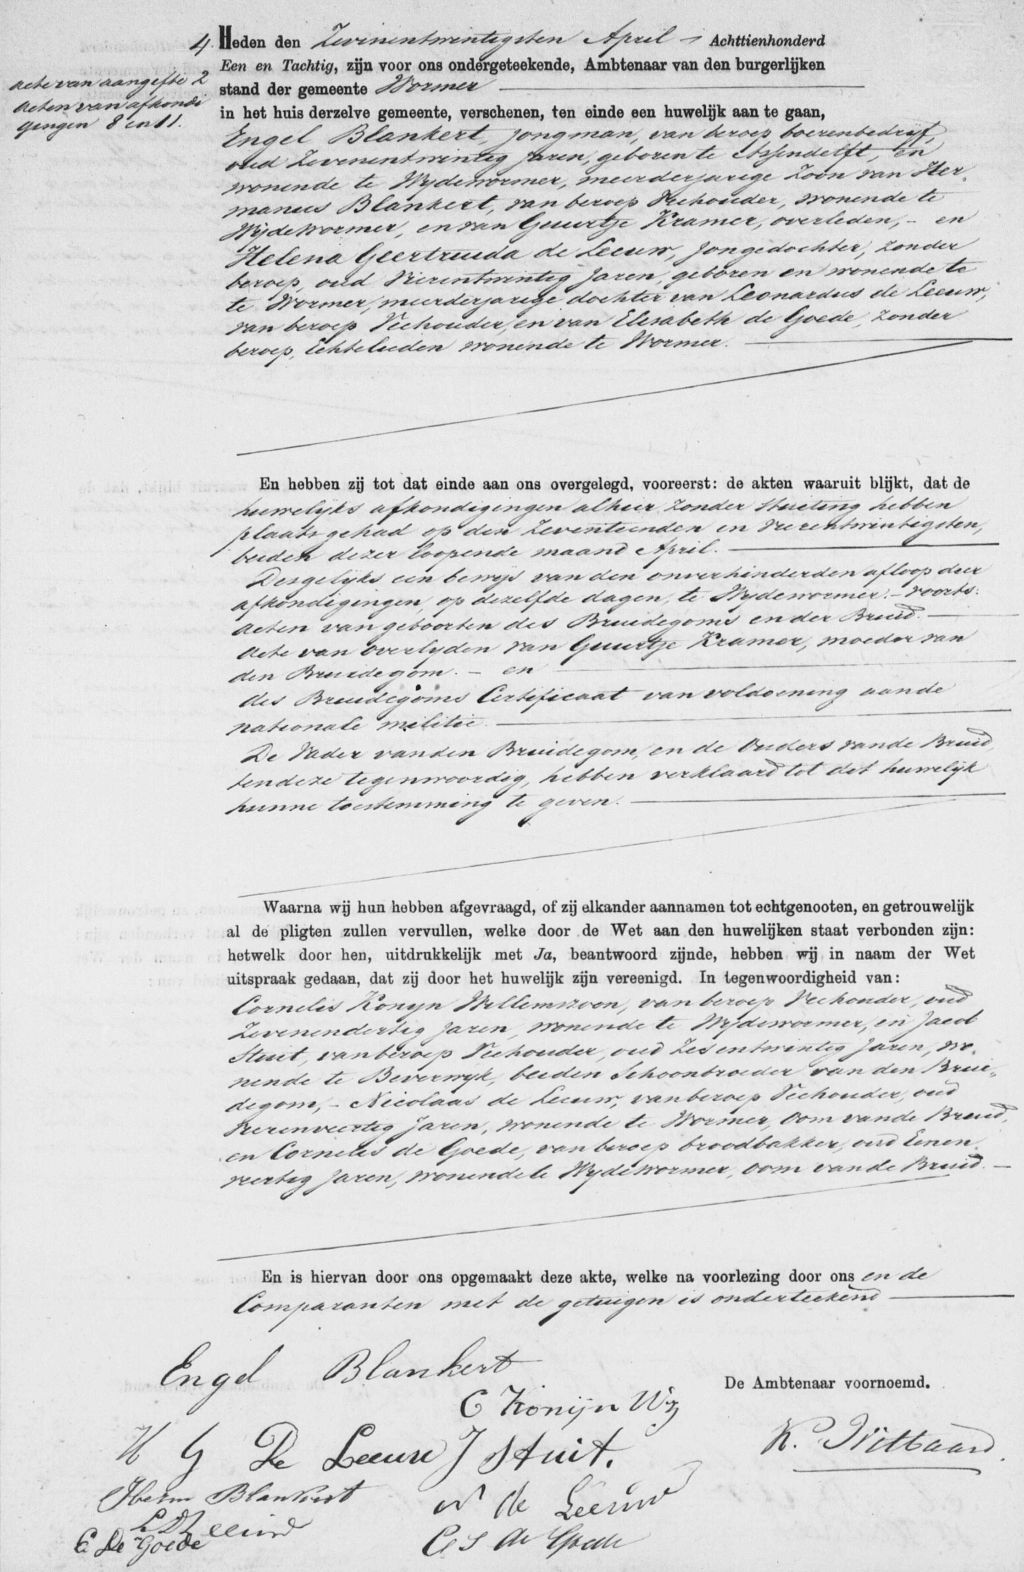 4. Heden den Zevenentwintigsten April Achttienhonderd
Een en Tachtig, zijn voor ons ondergeteekende, Ambtenaar van den burgerlijken
stand der gemeente Wormer
in het huis derzelve gemeente, verschenen, ten einde een huwelijk aan te gaan,
acte van aangifte 2
acten van afkondi
gingen 8 en 11.
Engel Blankert, jongman, van beroep boerenbedrijf,
oud Zevenentwintig jaren, geboren te Assendelft, en
wonende te Wijdewormer, meerderjarige Zoon van Her
manus Blankert, van beroep Veehouder, wonende te
Wijdewormer, en van Guurtje Kramer, overleden, - en
Helena Geertruida de Leeuw, jongedochter, zonder
beroep, oud Vierentwintig jaren, geboren en wonende te
te Wormer, meerderjarige dochter van Leonardus de Leeuw,
van beroep Veehouder, en van Elisabeth de Goede, zonder
beroep, Echtelieden wonende te Wormer.
En hebben zij tot dat einde aan ons overgelegd, vooreerst: de akten waaruit blijkt, dat de
huwelijks afkondigingen alhier zonder stuiting hebben
plaats gehad op den Zeventienden en Vierentwintigsten,
beiden dezer loopende maand April.
Desgelijks een bewijs van den onverhinderden afloop dier
afkondigingen, op dezelfde dagen, te Wijdewormer. - voorts:
Acten van geboorten des Bruidegoms en der Bruid.
Acte van overlyden van Guurtje Kramer, moeder van
den Bruidegom. - en
des Bruidegoms Certificaat van voldoening aan de
nationale militie.
De Vader van den Bruidegom, en de Ouders van de Bruid
ten deze tegenwoordig, hebben verklaard tot dit huwelijk
hunne toestemming te geven.
Waarna wij hun hebben afgevraagd, of zij elkander aannamen tot echtgenooten, en getrouwelijk
al de pligten zullen vervullen, welke door de Wet aan den huwelijken staat verbonden zijn:
hetwelk door hen, uitdrukkelijk met Ja, beantwoord zijnde, hebben wij in naam der Wet
uitspraak gedaan, dat zij door het huwelijk zijn vereenigd. In tegenwoordigheid van:
Cornelis Konyn Willemszoon, van beroep Veehouder, oud
Zevenendertig jaren, wonende te Wijdewormer, en Jacob
Stuit, van beroep Veehouder, oud Zesentwintig jaren, wo
nende te Beverwyk, beiden Schoonbroeder van den Brui
degom, - Nicolaas de Leeuw, van beroep Veehouder, oud
Vierenveertig jaren, wonende te Wormer, Oom van de Bruid,
en Cornelis de Goede, van beroep broodbakker, oud Eenen
veertig jaren, wonende te Wijdewormer, oom van de Bruid.
En is hiervan door ons opgemaakt deze akte, welke na voorlezing door ons en de
Comparanten met de getuigen is onderteekend
Engel Blankert
De Ambtenaar voornoemd.
C Konijn Wz
H G De Leeuw
J Stuit.
Herm Blankert
N de Leeuw
E De Goede